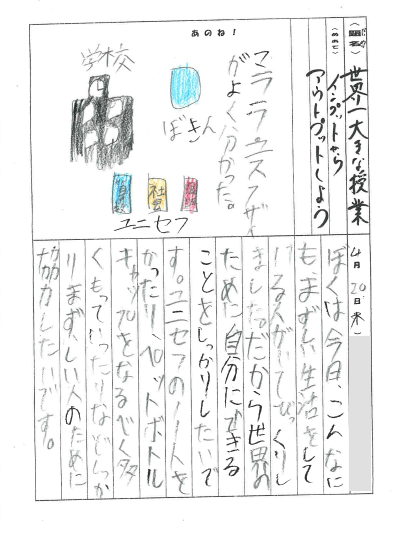 あのね!
（題名）
世界一大きな授業
（めあて）
インプットから
アウトプットしよう
マララユスフザイ
がよく分かった。
学校
ぼきん
社会
ユニセフ
4月20日（木）
ぼくは今日、こんなに
も、まずしい生活をして
いる人がいてびっくりし
ました。だから世界の
ために自分にできる
ことをしっかりしたいで
す。ユニセフのノートを
かったり、ペットボトル
キャップをなるべく多
くもっていったりなどしっか
りまずしい人のために
協力したいです。